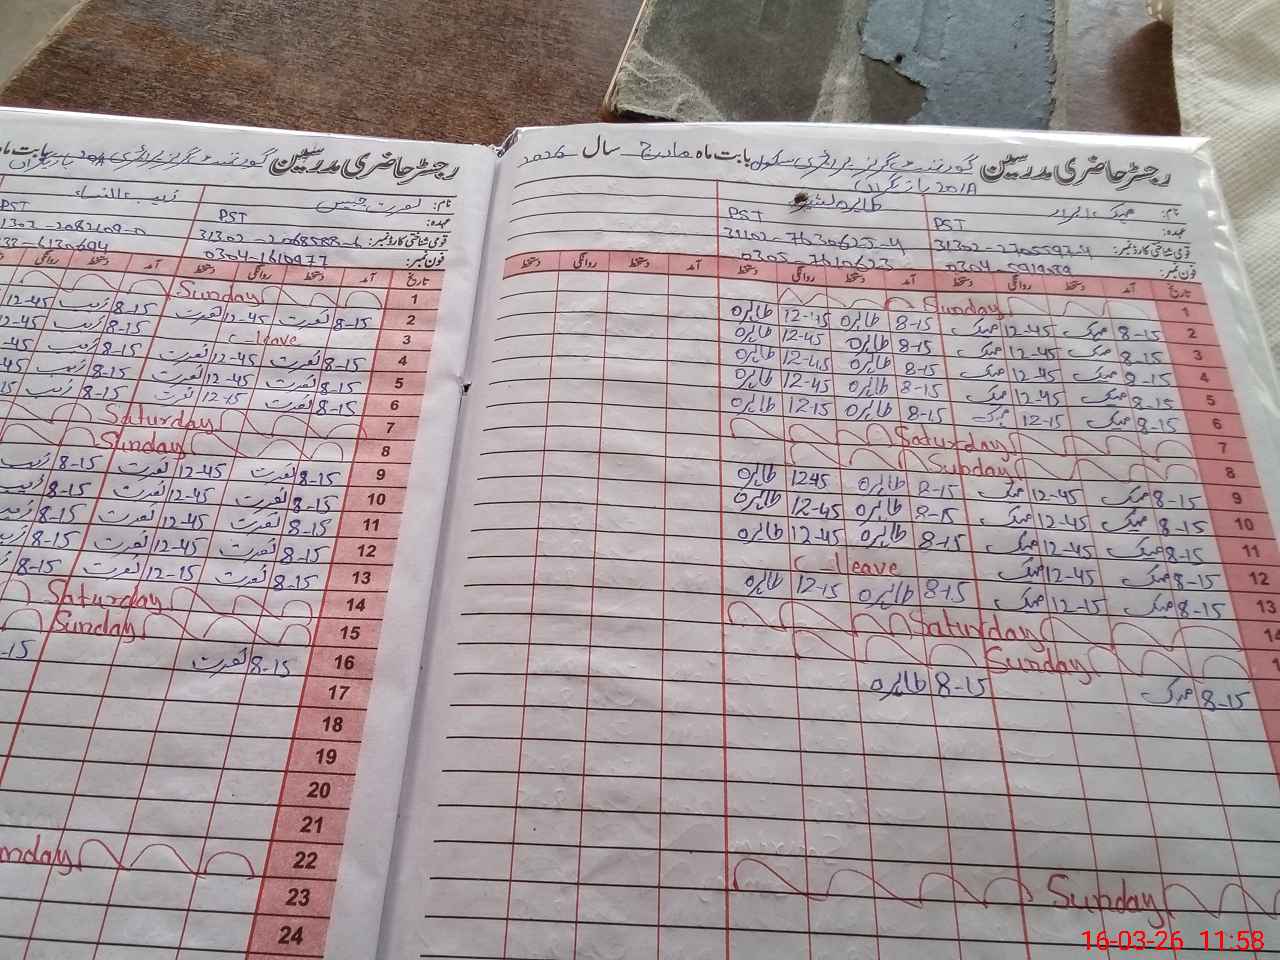 رجسٹر حاضری مدرسین گورنمنٹ گرلز پرائمری سکول بابت ماہ مارچ سال 2026
201A بازیگراں
نام: مہک
طاہرہ
عہدہ: PST
PST
قومی شناختی کارڈ نمبر:
فون نمبر:
تاریخ آمد دستخط روانگی دستخط آمد دستخط روانگی دستخط دستخط روانگی دستخط
1 Sunday
2 8-15 مہک 12-45 مہک 8-15 طاہرہ 12-45 طاہرہ
3 8-15 مہک 12-45 مہک 8-15 طاہرہ 12-45 طاہرہ
4 8-15 مہک 12-45 مہک 8-15 طاہرہ 12-45 طاہرہ
5 8-15 مہک 12-45 مہک 8-15 طاہرہ 12-45 طاہرہ
6 8-15 مہک 12-15 مہک 8-15 طاہرہ 12-15 طاہرہ
7 Saturday
8 Sunday
9 8-15 مہک 12-45 مہک 8-15 طاہرہ 12-45 طاہرہ
10 8-15 مہک 12-45 مہک 8-15 طاہرہ 12-45 طاہرہ
11 8-15 مہک 12-45 مہک 8-15 طاہرہ 12-45 طاہرہ
12 8-15 مہک 12-45 مہک C-leave
13 8-15 مہک 12-15 مہک 8-15 طاہرہ 12-15 طاہرہ
14 Saturday
Sunday
8-15 مہک 8-15 طاہرہ
Sunday
رجسٹر حاضری مدرسین گورنمنٹ گرلز پرائمری بابت ماہ
نام: نصرت شمس زیب النساء
عہدہ: PST PST
قومی شناختی کارڈ نمبر: 31302-2068588-6
فون نمبر: 0304-1610977
تاریخ آمد دستخط روانگی دستخط آمد دستخط روانگی
1 Sunday
2 8-15 نصرت 12-45 نصرت 8-15 زیب 12-45
3 C-leave 8-15 زیب
4 8-15 نصرت 12-45 نصرت 8-15 زیب
5 8-15 نصرت 12-45 نصرت 8-15 زیب
6 8-15 نصرت 12-15 نصرت 8-15 زیب
7 Saturday
8 Sunday
9 8-15 نصرت 12-45 نصرت 8-15 زیب
10 8-15 نصرت 12-45 نصرت 8-15 زیب
11 8-15 نصرت 12-45 نصرت 8-15 زیب
12 8-15 نصرت 12-45 نصرت 8-15
13 8-15 نصرت 12-15 نصرت 8-15
14 Saturday
15 Sunday
16 8-15 نصرت
17
18
19
20
21
22
23
24
16-03-26 11:58